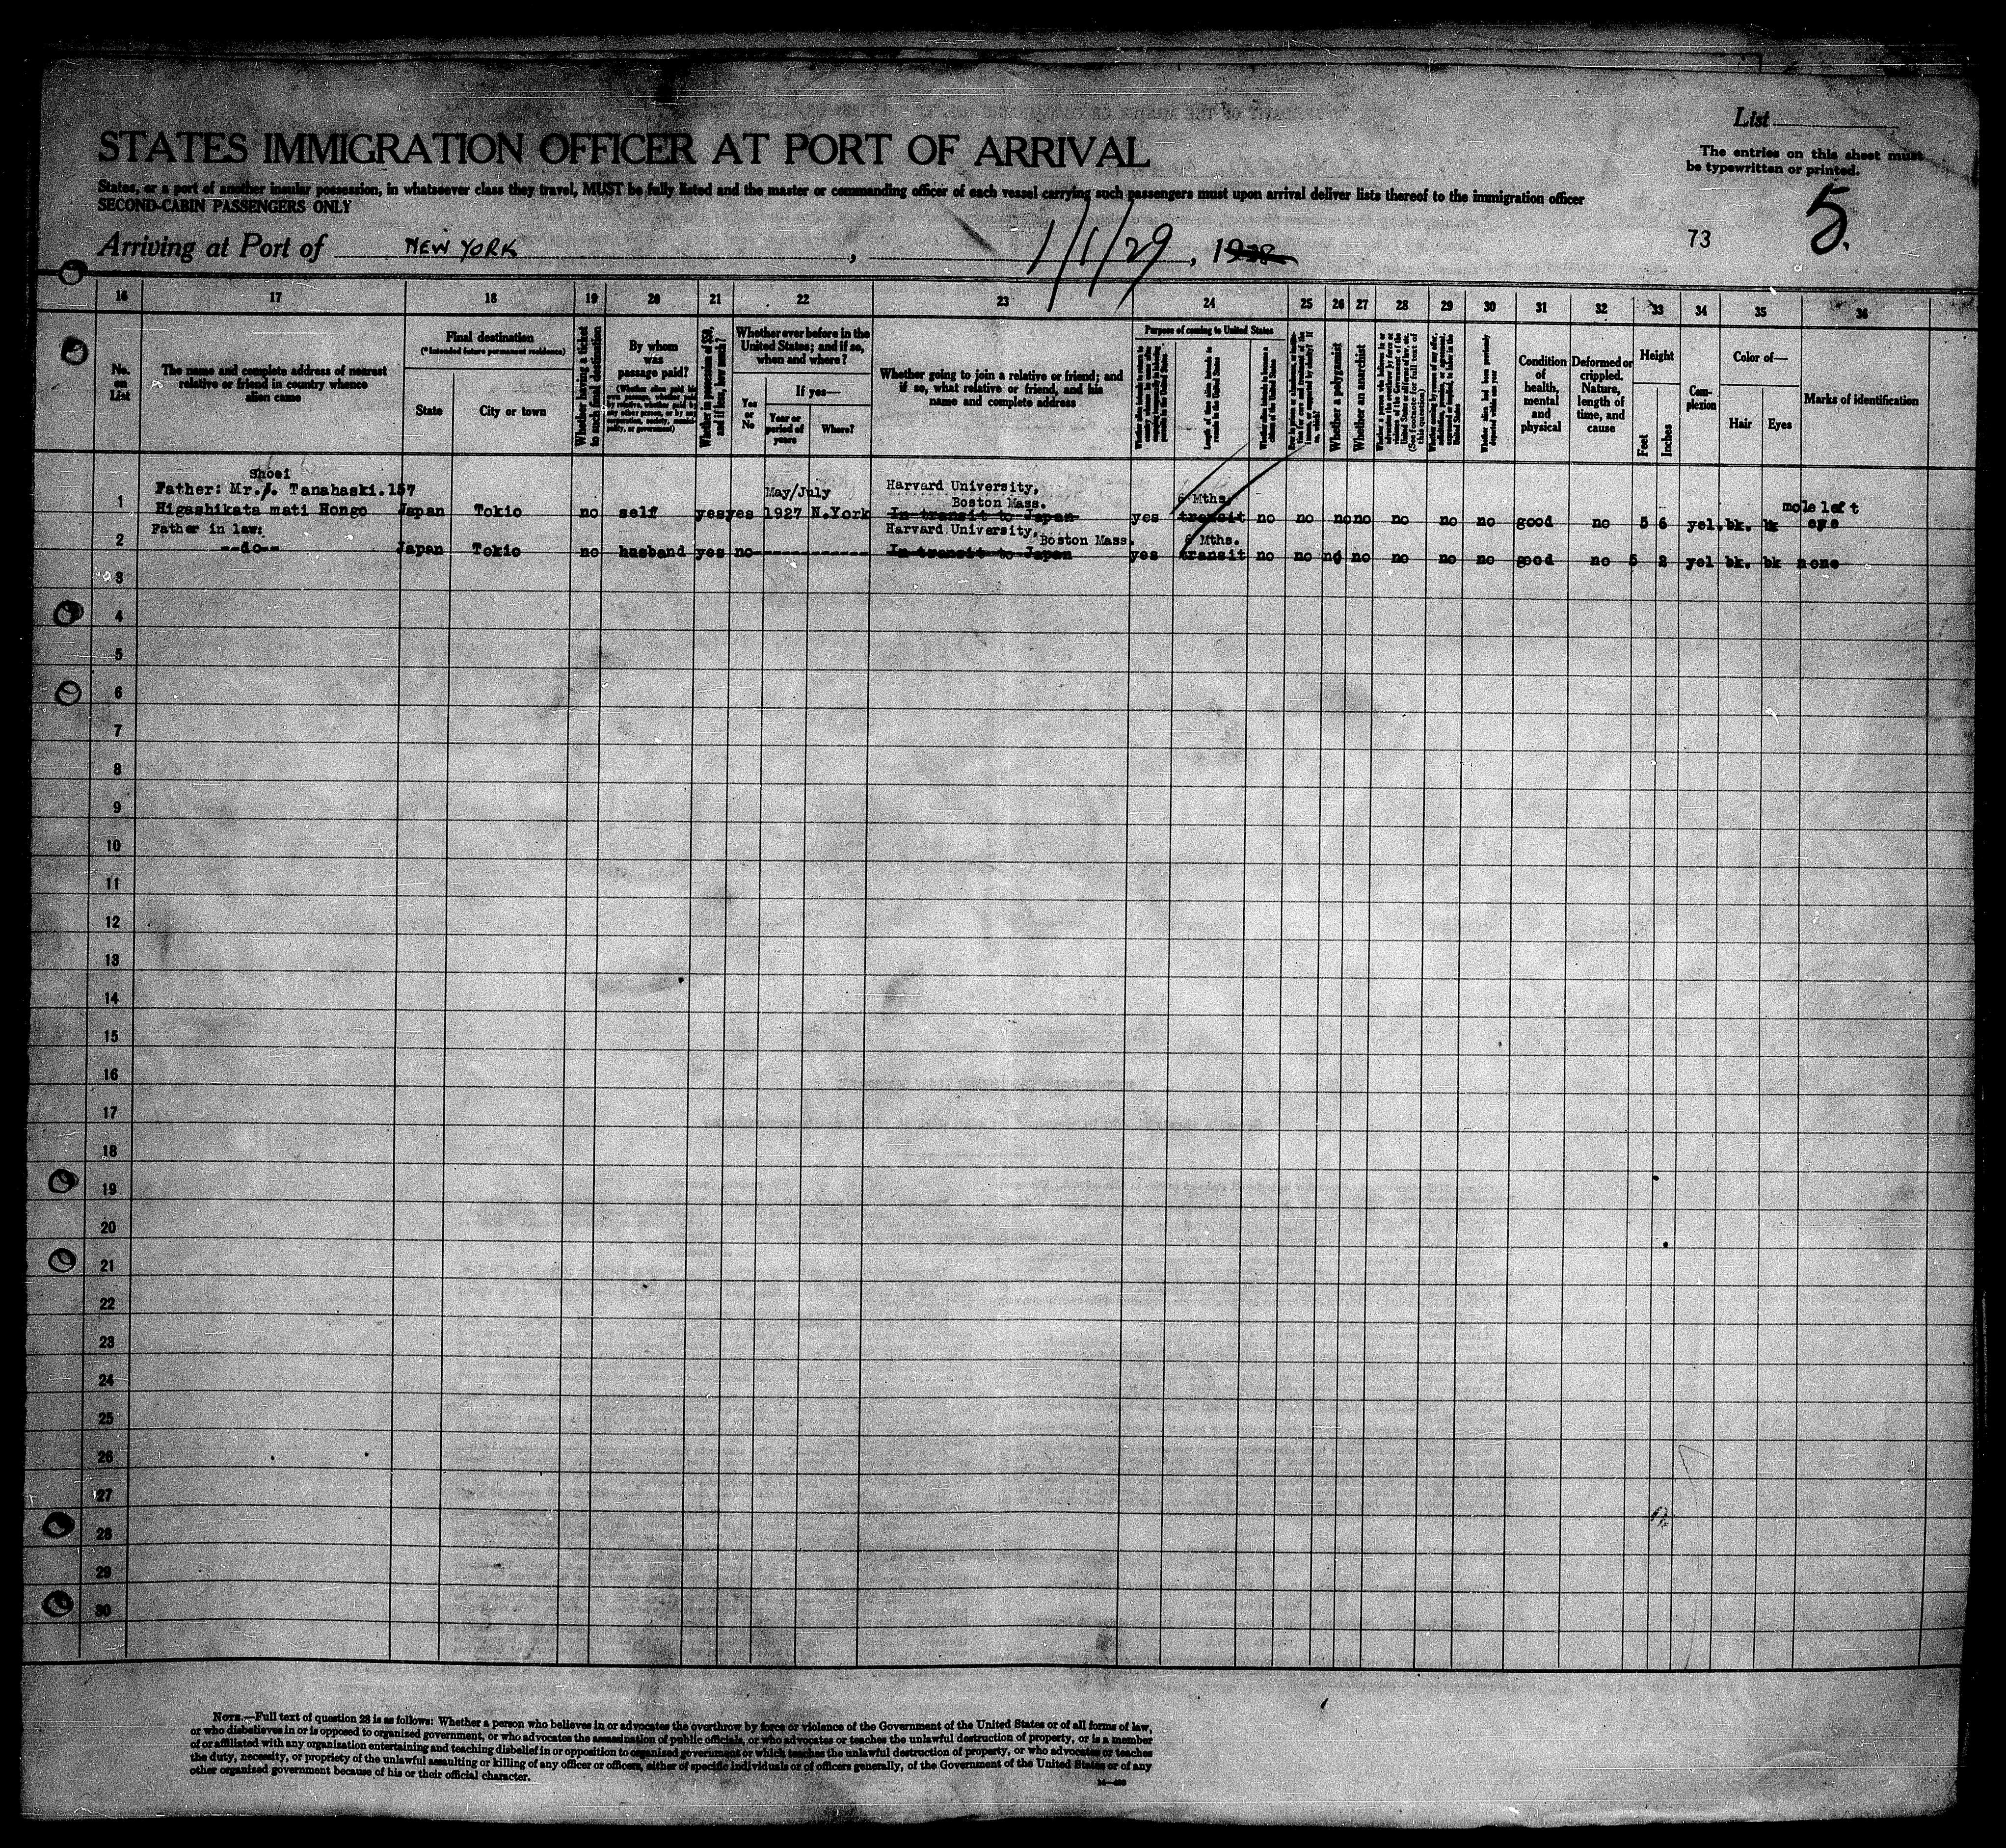 List
STATES IMMIGRATION OFFICER AT PORT OF ARRIVAL
The entries on this sheet must
be typewritten or printed.
States, or a port of another insular possession, in whatsoever class they travel, MUST be fully listed and the master or commanding officer of each vessel carrying such passengers must upon arrival deliver lists thereof to the immigration officer
SECOND-CABIN PASSENGERS ONLY
5.
73
Arriving at Port of NEW YORK, 1/1/29, 19
16 17 18 19 20 21 22 23 24 25 26 27 28 29 30 31 32 33 34 35 36
No. on List
The name and complete address of nearest
relative or friend in country whence
alien came
Final destination
(*Intended future permanent residence)
State
City or town
Whether having a ticket
to such final destination
By whom
was
passage paid?
Whether in possession of $50,
and if less, how much?
Whether ever before in the
United States; and if so,
when and where?
Yes or No
If yes—
Year or
period of
years
Where?
Whether going to join a relative or friend; and
if so, what relative or friend, and his
name and complete address
Purpose of coming to United States
Length of time alien intends to
remain in the United States
Whether alien intends to become a
citizen of the United States
Whether a polygamist
Whether an anarchist
Whether alien had been previously
deported within one year
Condition
of
health,
mental
and
physical
Deformed or
crippled.
Nature,
length of
time, and
cause
Height
Feet
Inches
Com-
plexion
Color of—
Hair
Eyes
Marks of identification
Shoei
Father: Mr. S. Tanahaski.157
May/July
Harvard University,
Boston Mass.
6 Mths.
mole left
1 Higashikata mati Hongo Japan Tokio no self yes yes 1927 N.York In transit to Japan yes transit no no no no no no no good no 5 6 yel. bk. bk eye
Father in law:
Harvard University,
Boston Mass.
6 Mths.
2 --do-- Japan Tokio no husband yes no------------- In transit to Japan yes transit no no no no no no no good no 5 2 yel bk. bk none
3
4
5
6
7
8
9
10
11
12
13
14
15
16
17
18
19
20
21
22
23
24
25
26
27
28
29
30
NOTE.—Full text of question 28 is as follows: Whether a person who believes in or advocates the overthrow by force or violence of the Government of the United States or of all forms of law,
or who disbelieves in or is opposed to organized government, or who advocates the assassination of public officials, or who advocates or teaches the unlawful destruction of property, or is a member
of or affiliated with any organization entertaining and teaching disbelief in or opposition to organized government or which teaches the unlawful destruction of property, or who advocates or teaches
the duty, necessity, or propriety of the unlawful assaulting or killing of any officer or officers, either of specific individuals or of officers generally, of the Government of the United States or of any
other organized government because of his or their official character.